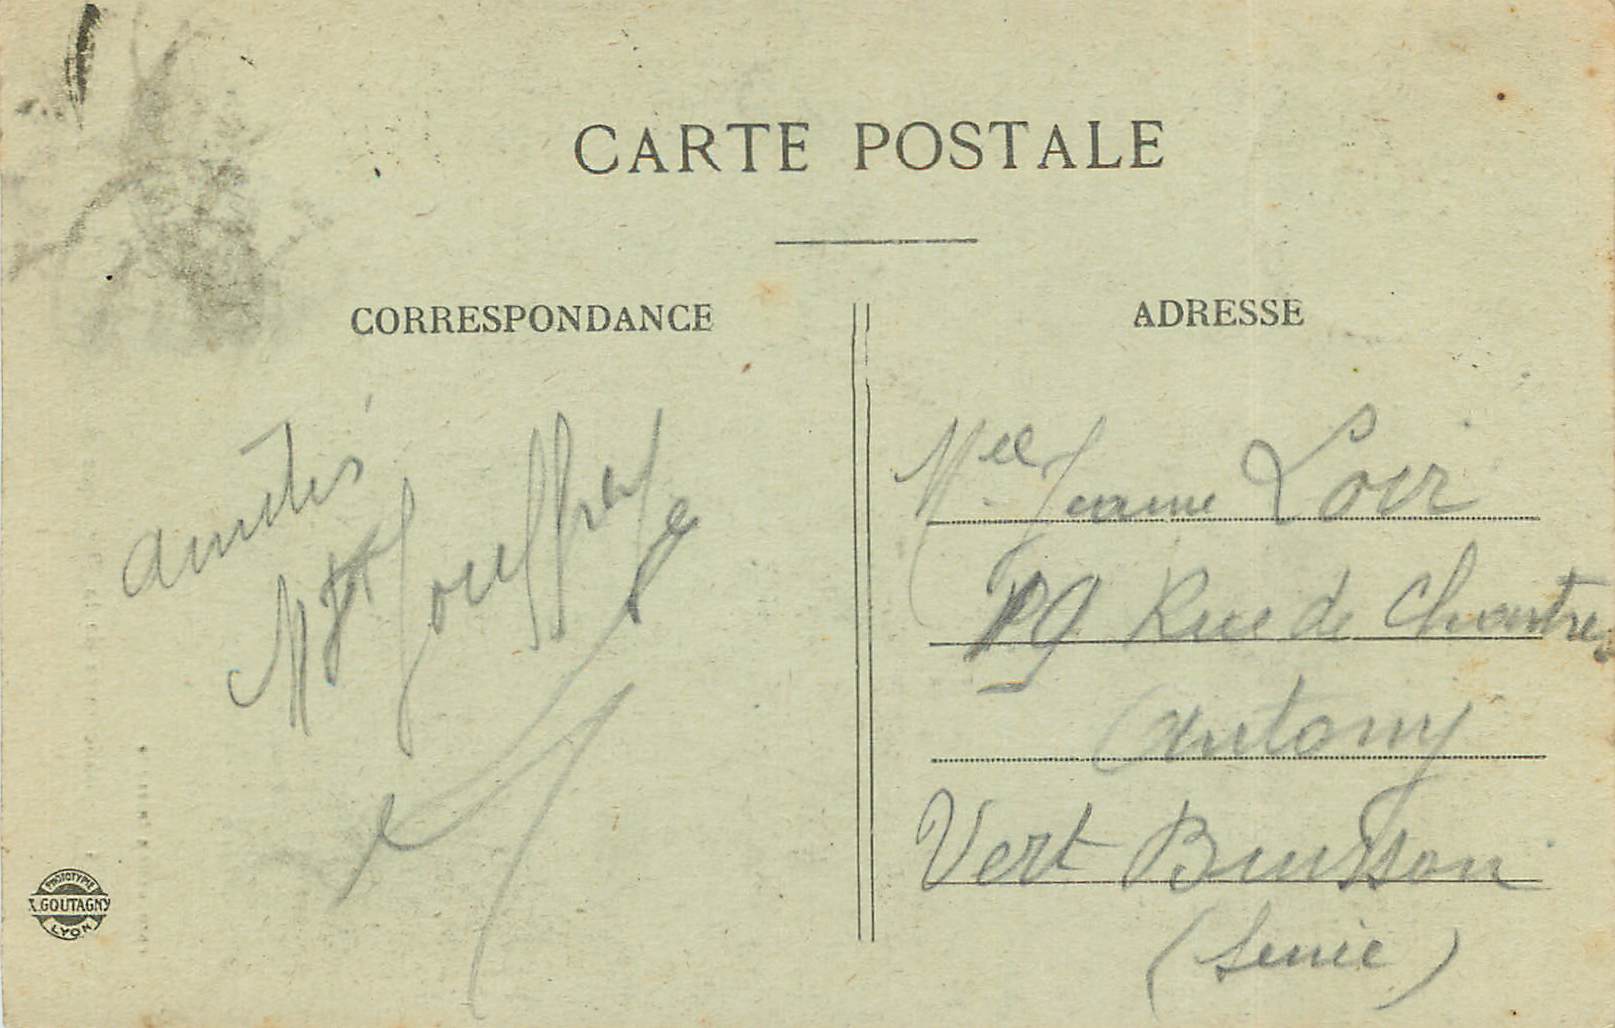 CARTE POSTALE
CORRESPONDANCE
amitiés
Jouffrey
ADRESSE
Mlle Jeanne Loir
19 Rue de Chartres
Antony
Vert Buisson
(Seine)
PHOTOTYPIE
X. GOUTAGNY
LYON